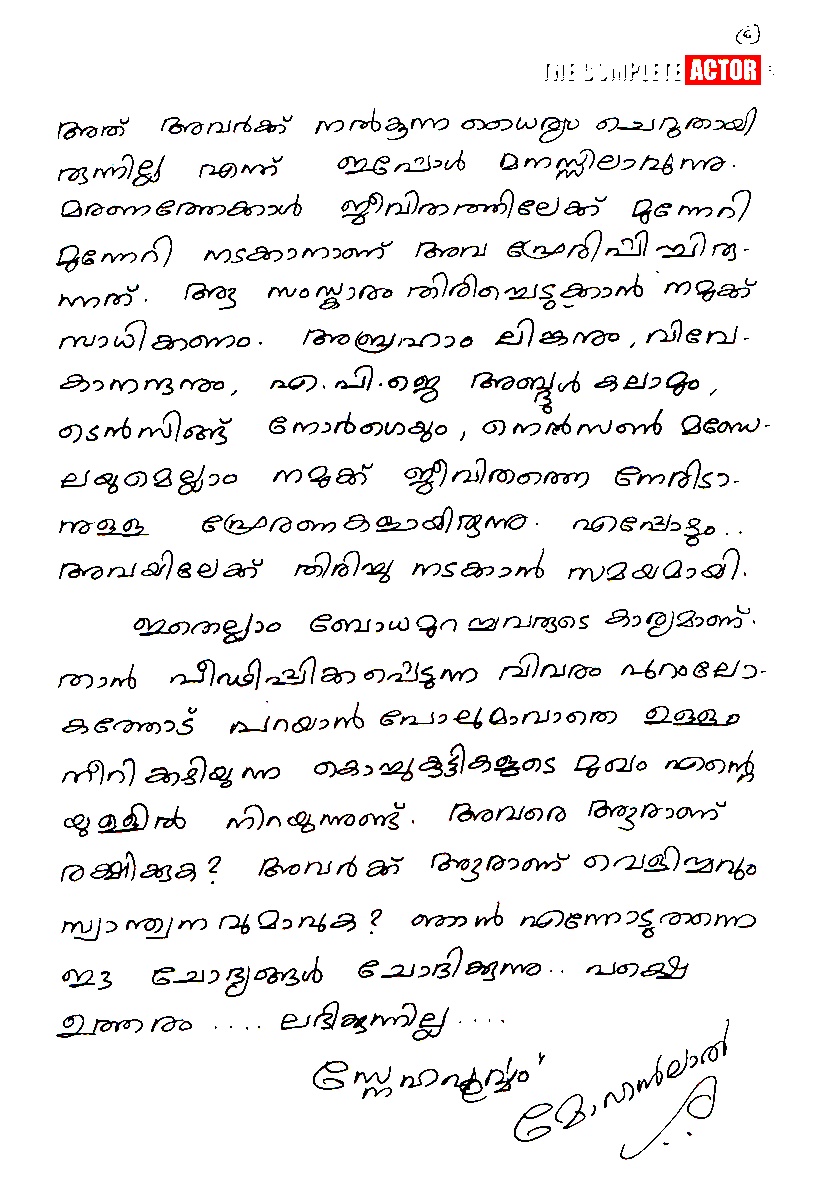 (6)
THE COMPLETE ACTOR
അത് അവർക്ക് നൽകുന്ന ധൈര്യം ചെറുതായി
രുന്നില്ല എന്ന് ഇപ്പോൾ മനസ്സിലാവുന്നു.
മരണത്തേക്കാൾ ജീവിതത്തിലേക്ക് മുന്നേറി
മുന്നേറി നടക്കാനാണ് അവ പ്രേരിപ്പിച്ചിരു-
ന്നത്. ആ സംസ്കാരം തിരിച്ചെടുക്കാൻ നമുക്ക്
സാധിക്കണം. അബ്രഹാം ലിങ്കനും, വിവേ-
കാനന്ദനും, എ.പി.ജെ അബ്ദുൾ കലാമും,
ടെൻസിങ്ങ് നോർഗെയും, നെൽസൺ മണ്ഡേ-
ലയുമെല്ലാം നമുക്ക് ജീവിതത്തെ നേരിടാ-
നുള്ള പ്രേരണകളായിരുന്നു. എപ്പോഴും..
അവയിലേക്ക് തിരിച്ചു നടക്കാൻ സമയമായി.
ഇതെല്ലാം ബോധമുറച്ചവരുടെ കാര്യമാണ്.
താൻ പീഢിപ്പിക്കപ്പെടുന്ന വിവരം പുറംലോ-
കത്തോട് പറയാൻ പോലുമാവാതെ ഉള്ളം
നീറി കഴിയുന്ന കൊച്ചുകുട്ടികളുടെ മുഖം എന്റെ
യുള്ളിൽ നിറയുന്നുണ്ട്. അവരെ ആരാണ്
രക്ഷിക്കുക? അവർക്ക് ആരാണ് വെളിച്ചവും
സ്വാന്ത്വനവുമാവുക? ഞാൻ എന്നോടുതന്നെ
ഈ ചോദ്യങ്ങൾ ചോദിക്കുന്നു.. പക്ഷെ
ഉത്തരം .... ലഭിക്കുന്നില്ല ....
സ്നേഹപൂർവ്വം
മോഹൻലാൽ